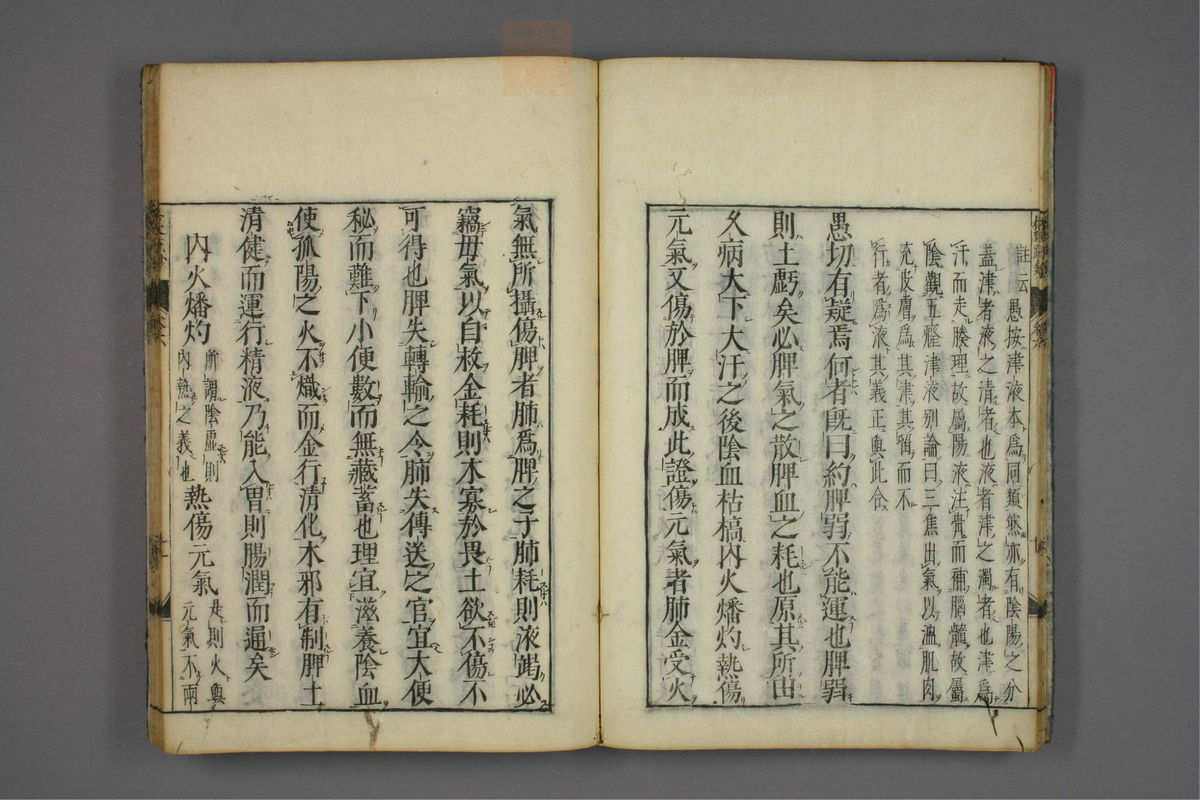 註云愚按津液本爲同類然亦有陰陽之分
蓋津者液之清者也液者津之濁者也津爲
汗而走腠理故屬陽液注骨而補腦髓故屬
陰觀五癃津液別論曰三焦出氣以溫肌肉
充皮膚爲其津其留而不
行者爲液其義正與此合
愚切有疑焉何者旣曰約脾弱不能運也脾弱
則土虧矣必脾氣之散脾血之耗也原其所由
久病大下大汗之後陰血枯槁內火燔灼熱傷
元氣又傷於脾而成此證傷元氣者肺金受火
氣無所攝傷脾者肺爲脾之子肺耗則液竭必
竊母氣以自救金耗則木寡於畏土欲不傷不
可得也脾失轉輸之令肺失傳送之官宜大便
秘而難下小便數而無藏蓄也理宜滋養陰血
使孤陽之火不熾而金行清化木邪有制脾土
清健而運行精液乃能入胃則腸潤而通矣
內火燔灼
所謂陰虛則
內熱之義也
熱傷元氣
是則火與
元氣不兩